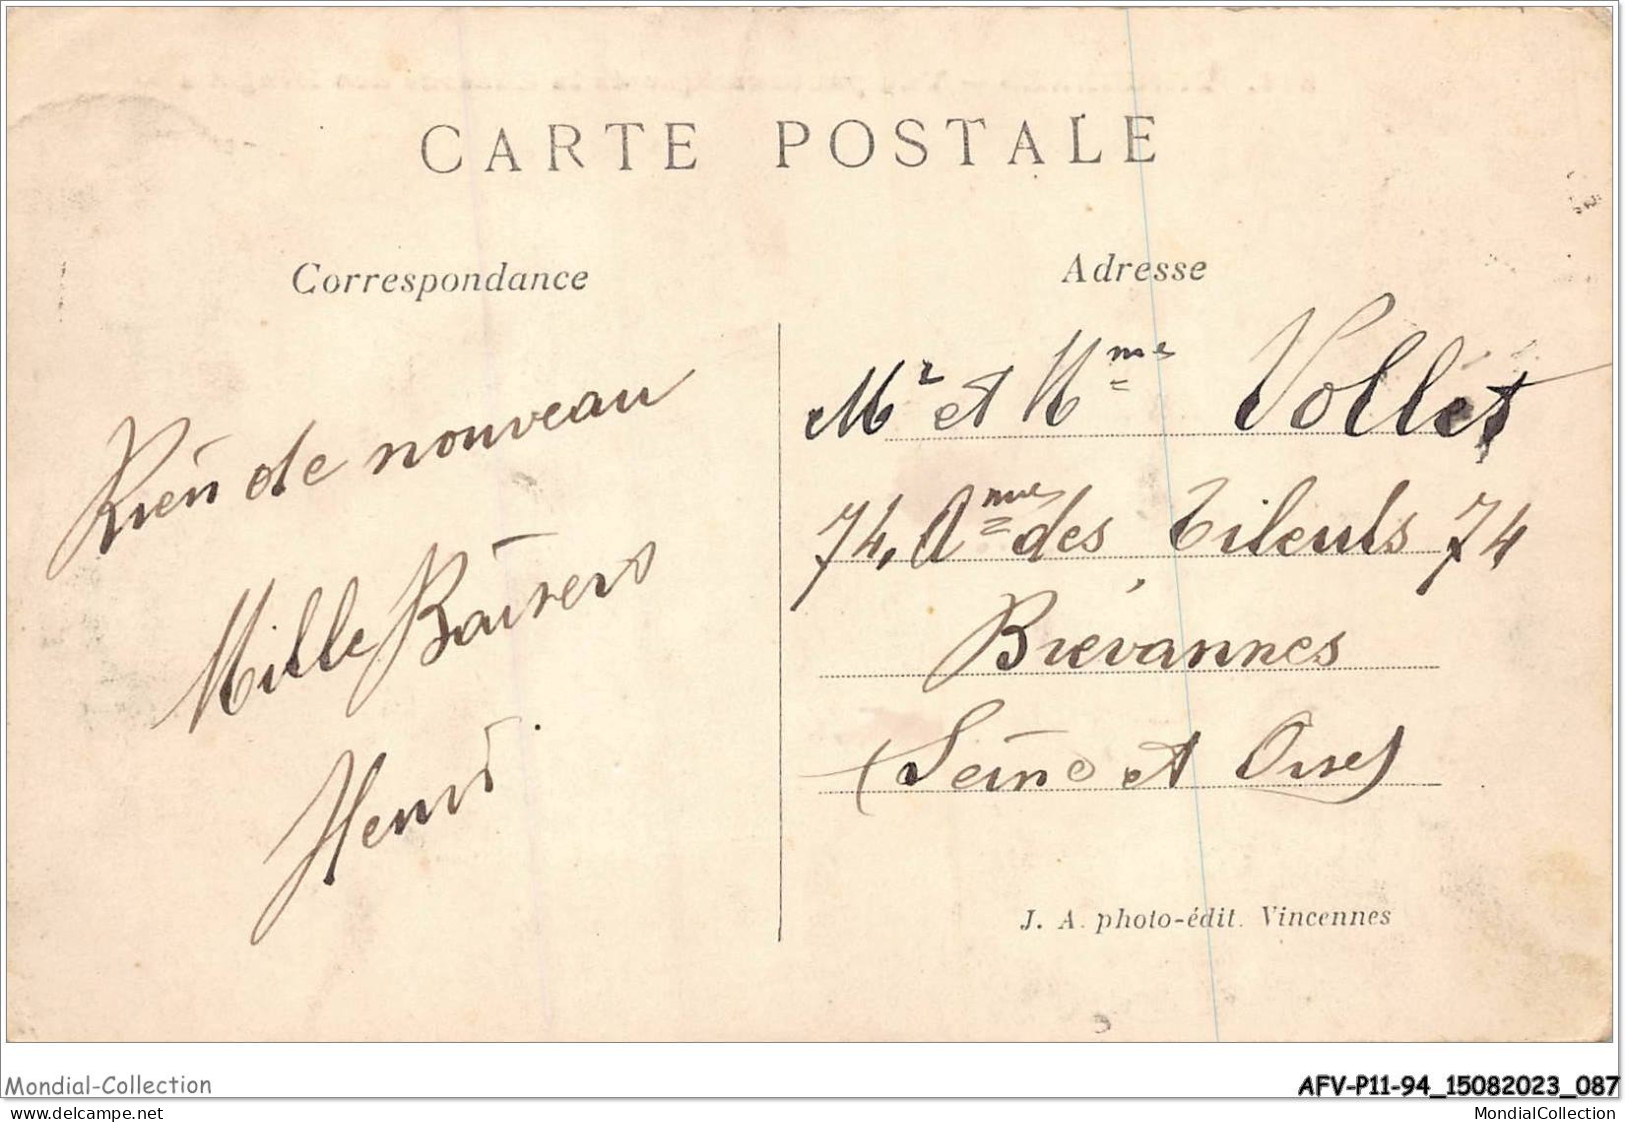 CARTE POSTALE
Correspondance
Rien de nouveau
Mille Baisers
Henri
Adresse
Mr et Mme Vollet
74, Anue des Tilleuls 74
Brévannes
(Seine et Oise)
J. A. photo-édit. Vincennes
Mondial-Collection
AFV-P11-94_15082023_087
www.delcampe.net
MondialCollection